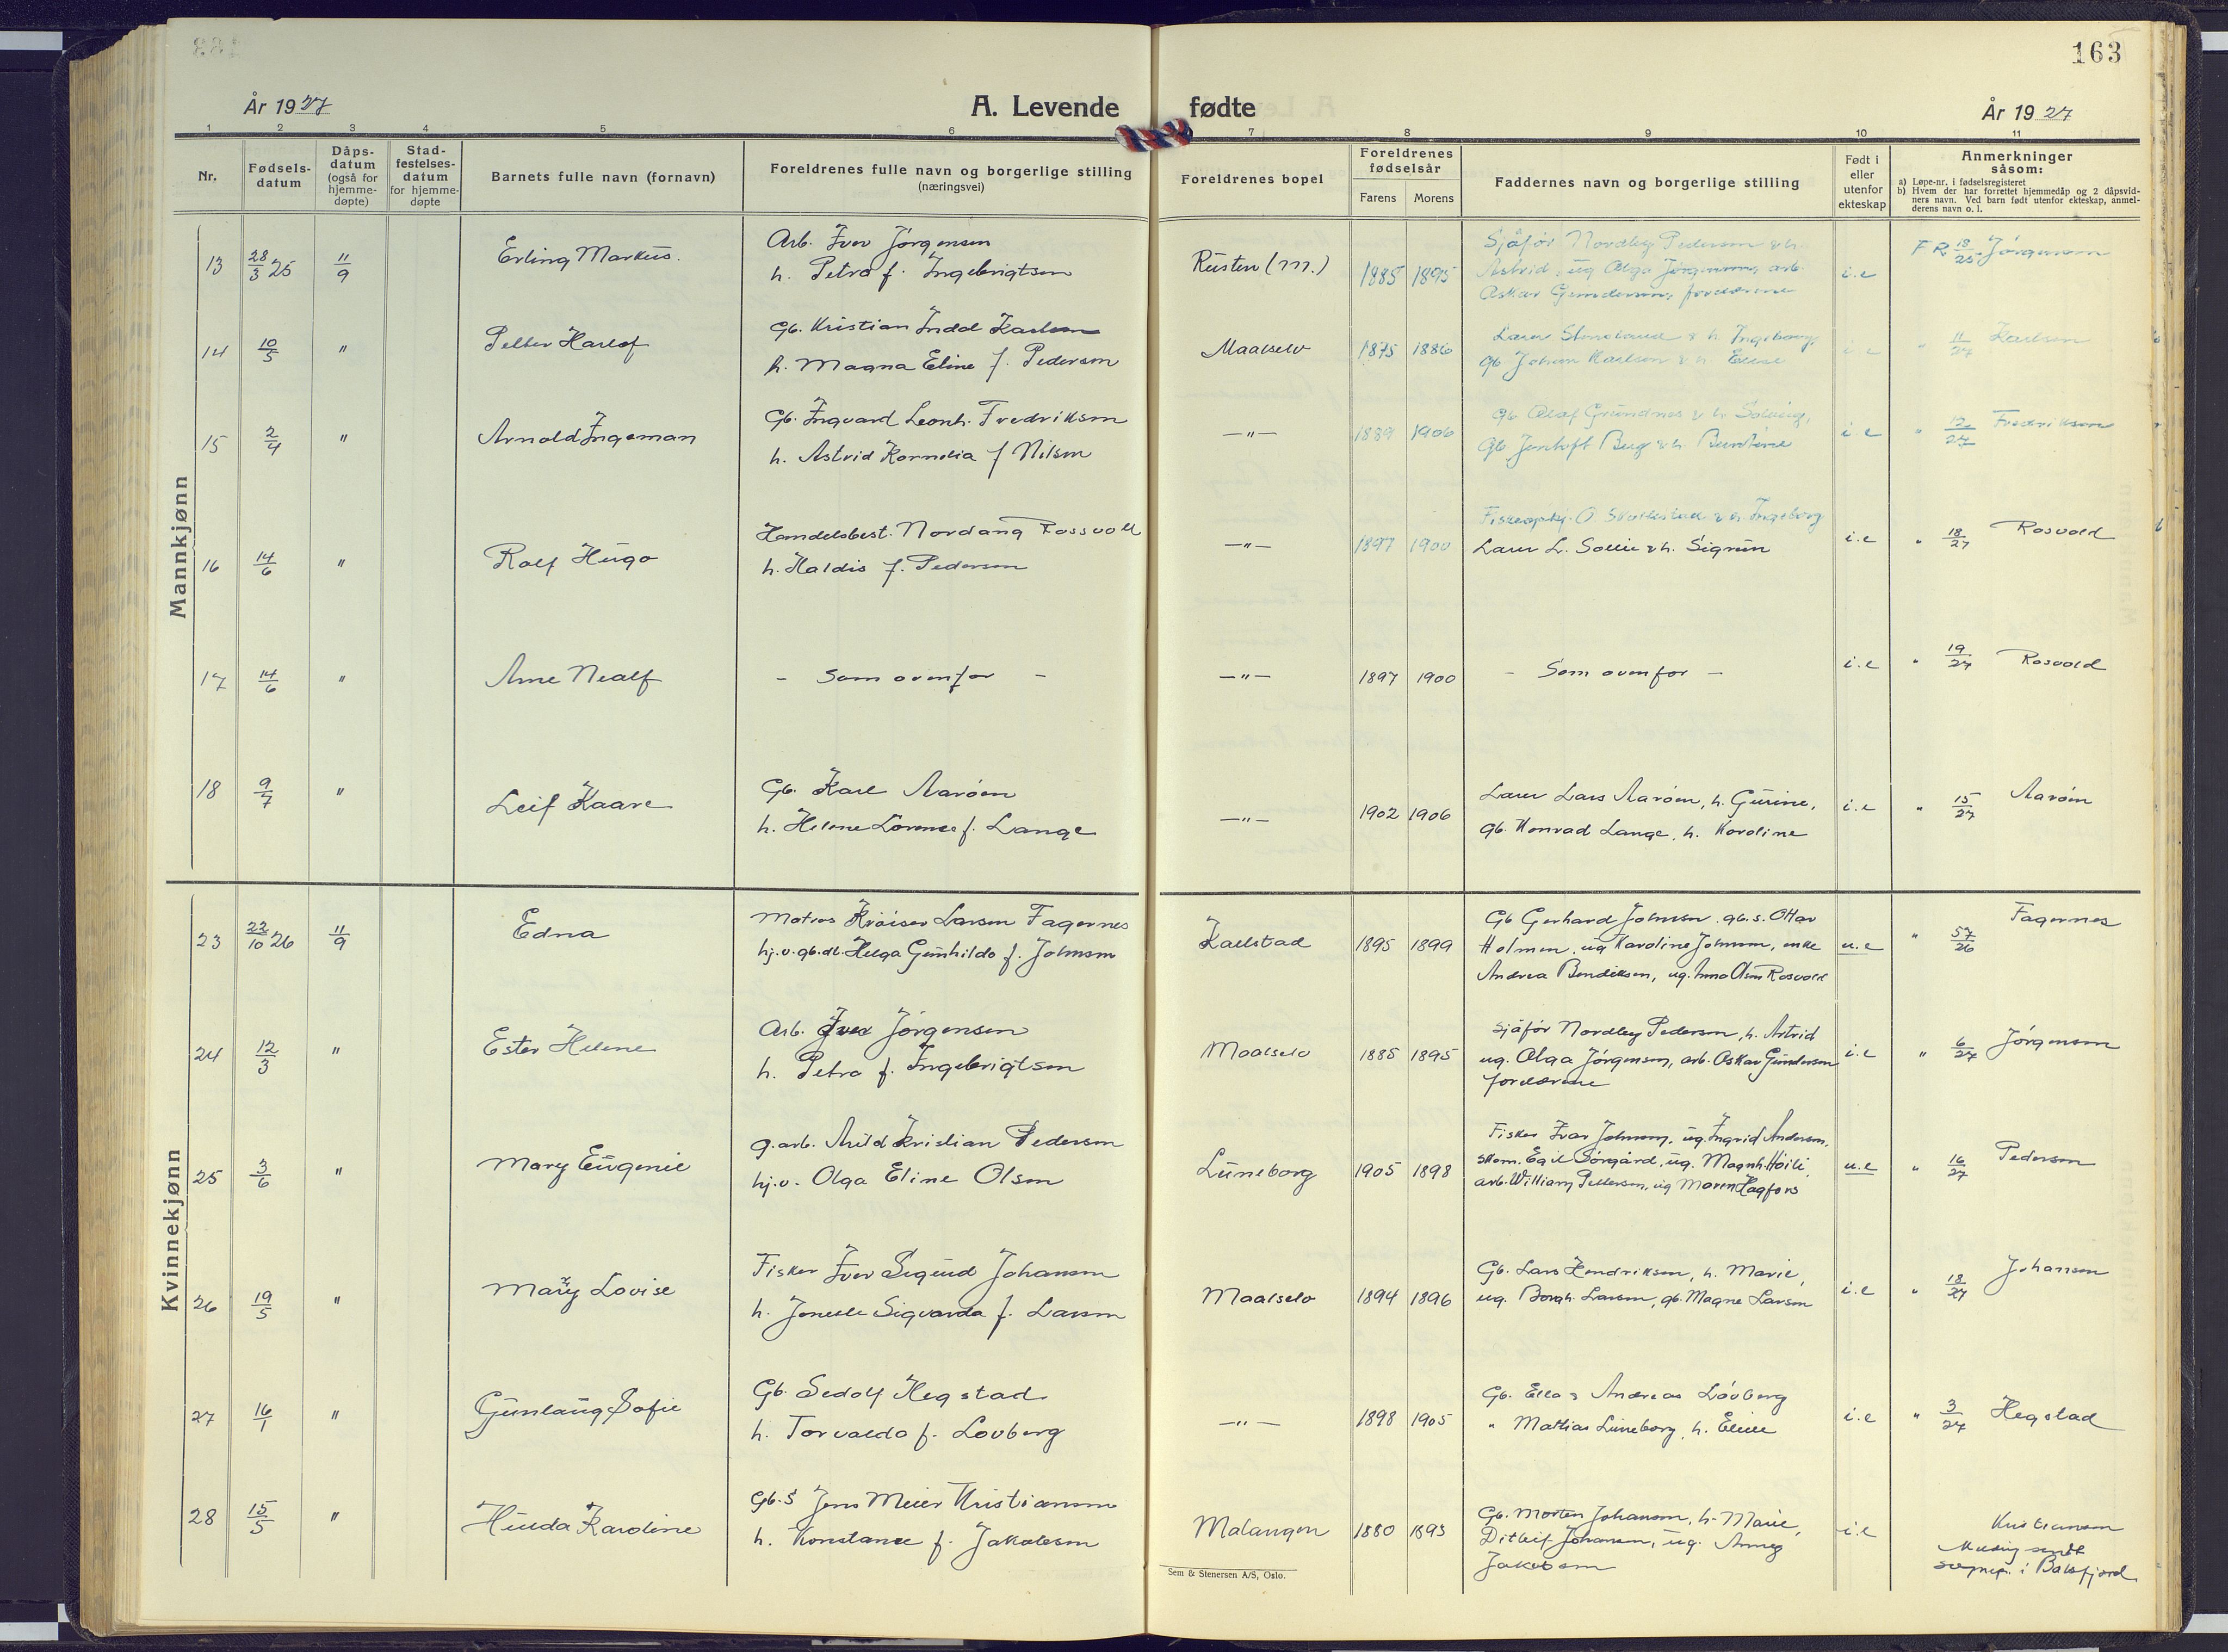 163
År 1927
A. Levende fødte
År 1927
1 2 3 4 5 6 7 8 9 10 11
Nr.
Fødsels-
datum
Dåps-
datum
(også for
hjemme-
døpte)
Stad-
festelses-
datum
for hjemme-
døpte
Barnets fulle navn (fornavn)
Foreldrenes fulle navn og borgerlige stilling
(næringsvei)
Foreldrenes bopel
Foreldrenes
fødselsår
Farens Morens
Faddernes navn og borgerlige stilling
Født i
eller
utenfor
ekteskap
Anmerkninger
såsom:
a) Løpe-nr. i fødselsregisteret
b) Hvem der har forrettet hjemmedåp og 2 dåpsvid-
ners navn. Ved barn født utenfor ekteskap, anmel-
derens navn o. l.
Mannkjønn
13 28/3 25 11/9 Erling Markus.
Arb. Iver Jörgensen
h. Petra f. Ingebrigtsen
Rusten (M.) 1885 1895
Sjåför Nordley Pedersen & h.
Astrid, ug Olga Jörgensen, arb.
Oskar Gundersen, foreldrene
i.e F R 18/25 Jörgensen
14 10/5 " Petter Harlef
Gb. Kristian Indal Karlsen
h. Magna Eline f. Pedersen
Maalselv 1875 1886
Lærer & h. Ingeborg,
Gb Johan Karlsen & h. Elise
i e " 11/27 Karlsen
15 2/4 " Arnold Ingeman
Gb. Ingvard Leonh. Fredriksen
h. Astrid Kornelia f Nilsen
—"— 1889 1906
Gb Olaf Grundnes & h. Solveig,
Gb Jentoft Berg & h. Berntine
i e " 12/27 Fredriksen
16 14/6 " Rolf Hugo
Handelsbest. Nordang Rossvoll
h. Haldis f. Pedersen
—"— 1897 1900
O. & h. Ingeborg
Lærer L. Sollie & h. Sigrun
i.e " 18/27 Rosvold
17 14/6 " Arne Nealf
- Som ovenfor -
—"— 1897 1900
- Som ovenfor -
i.e " 19/27 Rosvold
18 9/7 " Leif Kaare
Gb. Karl Aaröen
h. Helene Lorense f. Lange
—"— 1902 1906
Lærer Lars Aaröen, h. Gurine,
Gb. Konrad Lange, h. Karoline
i.e " 15/27 Aaröen
Kvinnekjønn
23 22/10 26 11/9 Edna
Matros Kröiser Larsen Fagernes
hj.v. gb.dt. Helga Gunhilda f. Johnsen
Karlstad 1895 1899
Gb Gerhard Johnsen. gb.s. Ottar
Holmen, ug Karoline Johnsen, enke
Andrea Bendiksen, ug. Anna Olsen Rosvold
u.e " 57/26 Fagernes
24 12/3 " Ester Helene
Arb. Iver Jörgensen
h. Petra f. Ingebrigtsen
Maalselv 1885 1895
Sjåför Nordley Pedersen, h. Astrid
ug. Olga Jörgensen, arb. Oskar Gundersen
foreldrene
i.e " 6/27 Jörgensen
25 3/6 " Mary Eugenie
g.arb. Arild Kristian Pedersen
hj.v. Olga Eline Olsen
Luneborg 1905 1898
Fisker Ivar Johnsen, ug. Ingrid Andersen,
Skom. Egil Sörgård, ug. Magnh. Höili,
arb. William Pettersen, ug Maren Hagfors
u.e " 16/27 Pedersen
26 19/5 " Mary Lovise
Fisker Iver Sigurd Johansen
h. Sigvarda f. Larsen
Maalselv 1894 1896
Gb. Lars Hendriksen, h. Marie,
ug. Borgh. Larsen, gb. Magne Larsen
i.e " 18/27 Johansen
27 16/1 " Gunlaug Sofie
Gb. Sedolf Hegstad
h. Torvalda f. Lovberg
—"— 1898 1905
Gb. Ella & Andreas Lövberg
" Mathias Luneborg, h. Eline
i.e " 3/27 Hegstad
28 15/5 " Hulda Karoline
Gb.S Jens Meier Kristiansen
h. Konstance f. Jakobsen
Malangen 1880 1893
Gb. Morten Johansen, h. Marie,
Ditleif Johansen, ug. Anney
Jakobsen
i.e Kristiansen
Melding sendt
sognepr. i Balsfjord
Sem & Stenersen A/S, Oslo.